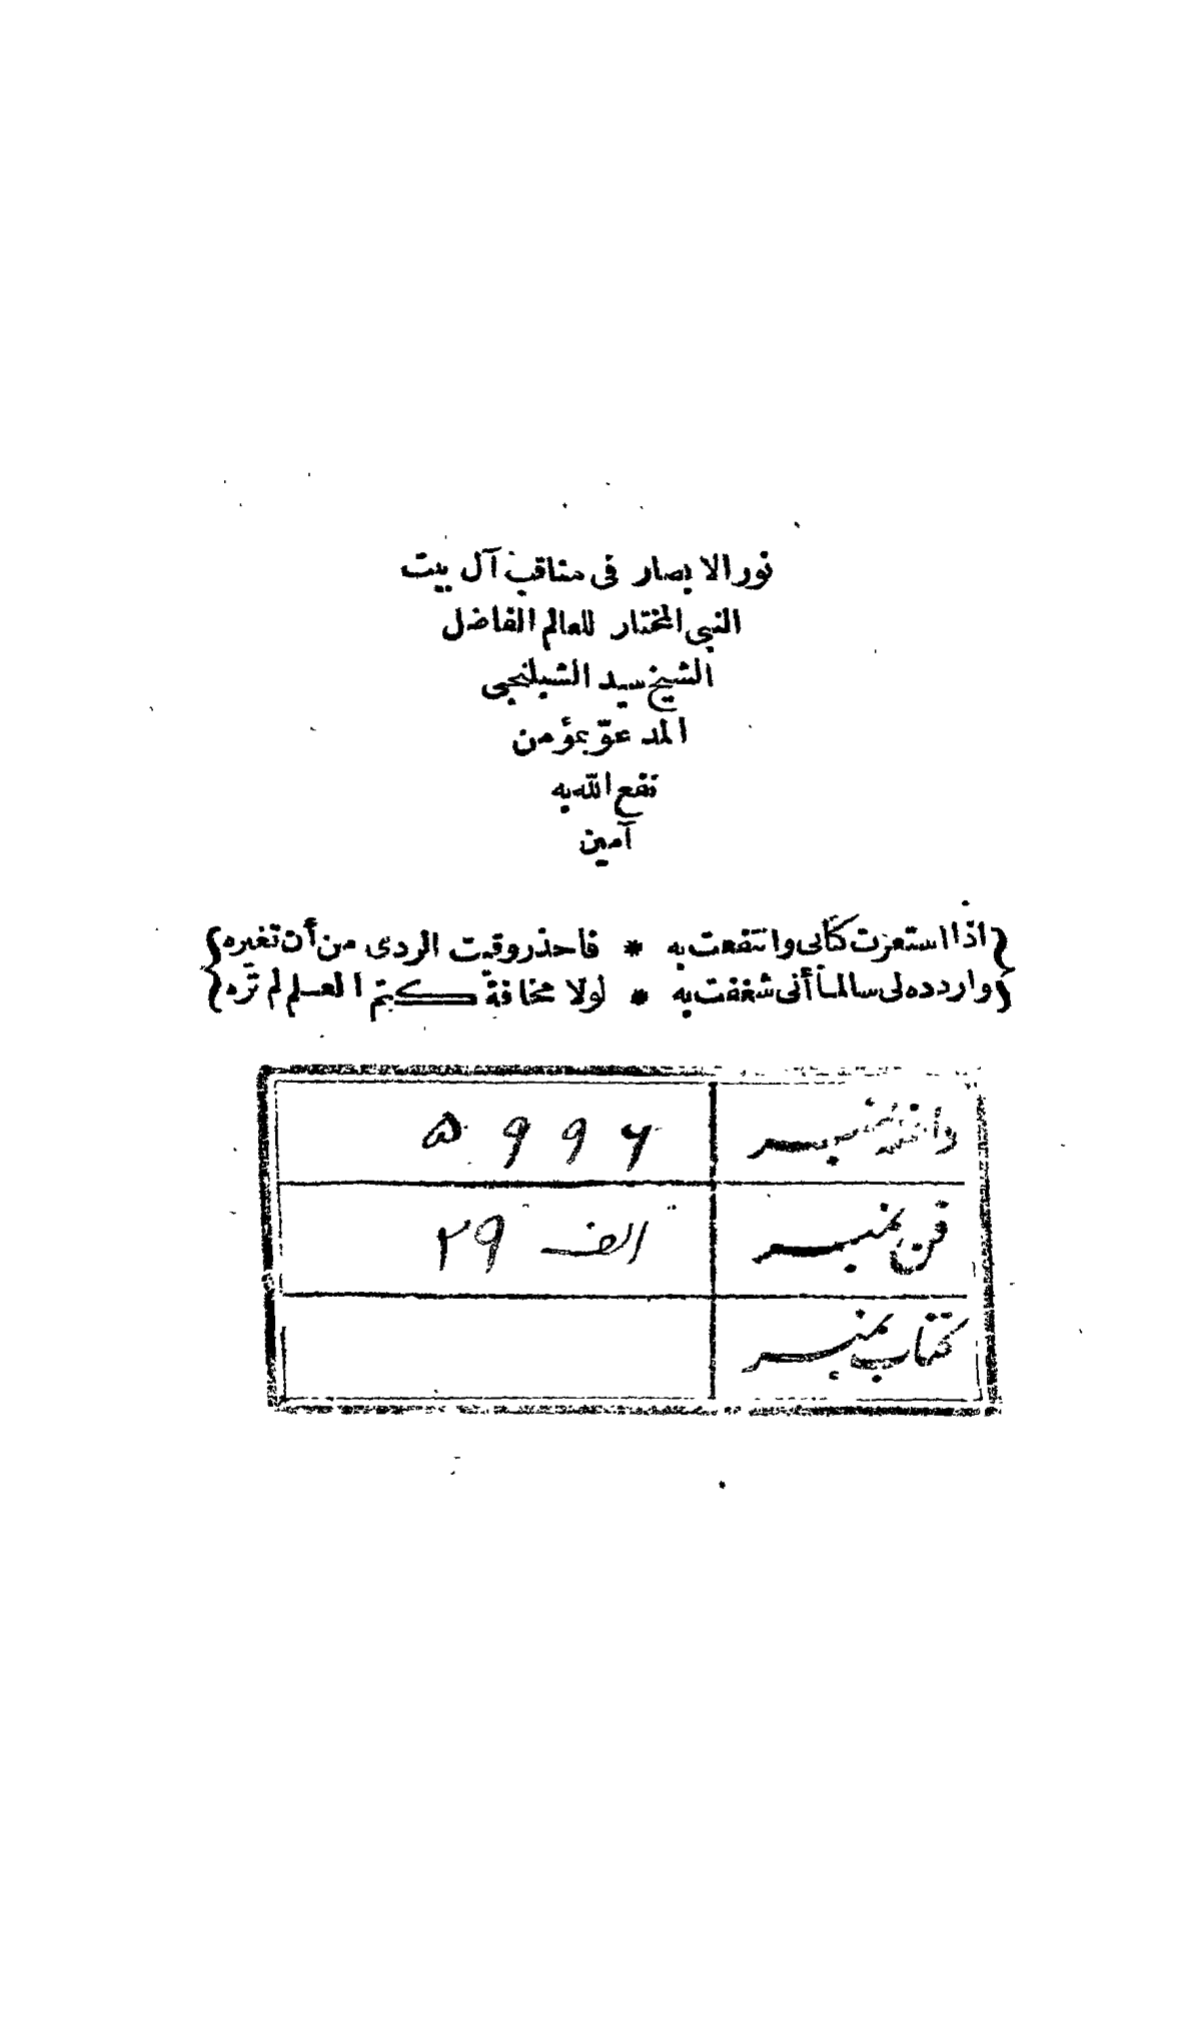 نور الابصار فى مناقب آل بيت
النبى المختار للعالم الفاضل
الشيخ سيد الشبلنجى
المدعوّ بمؤمن
نفع الله به
آمين
{اذا استعرت كتابى وانتفعت به * فاحذر وقيت الردى من أن تغيره}
{واردده لى سالما أنى شغفت به * لولا مخافة كتم العلم لم تره}
داخله نمبر ۵۹۹۶
فن نمبر الف ۲۹
كتاب نمبر